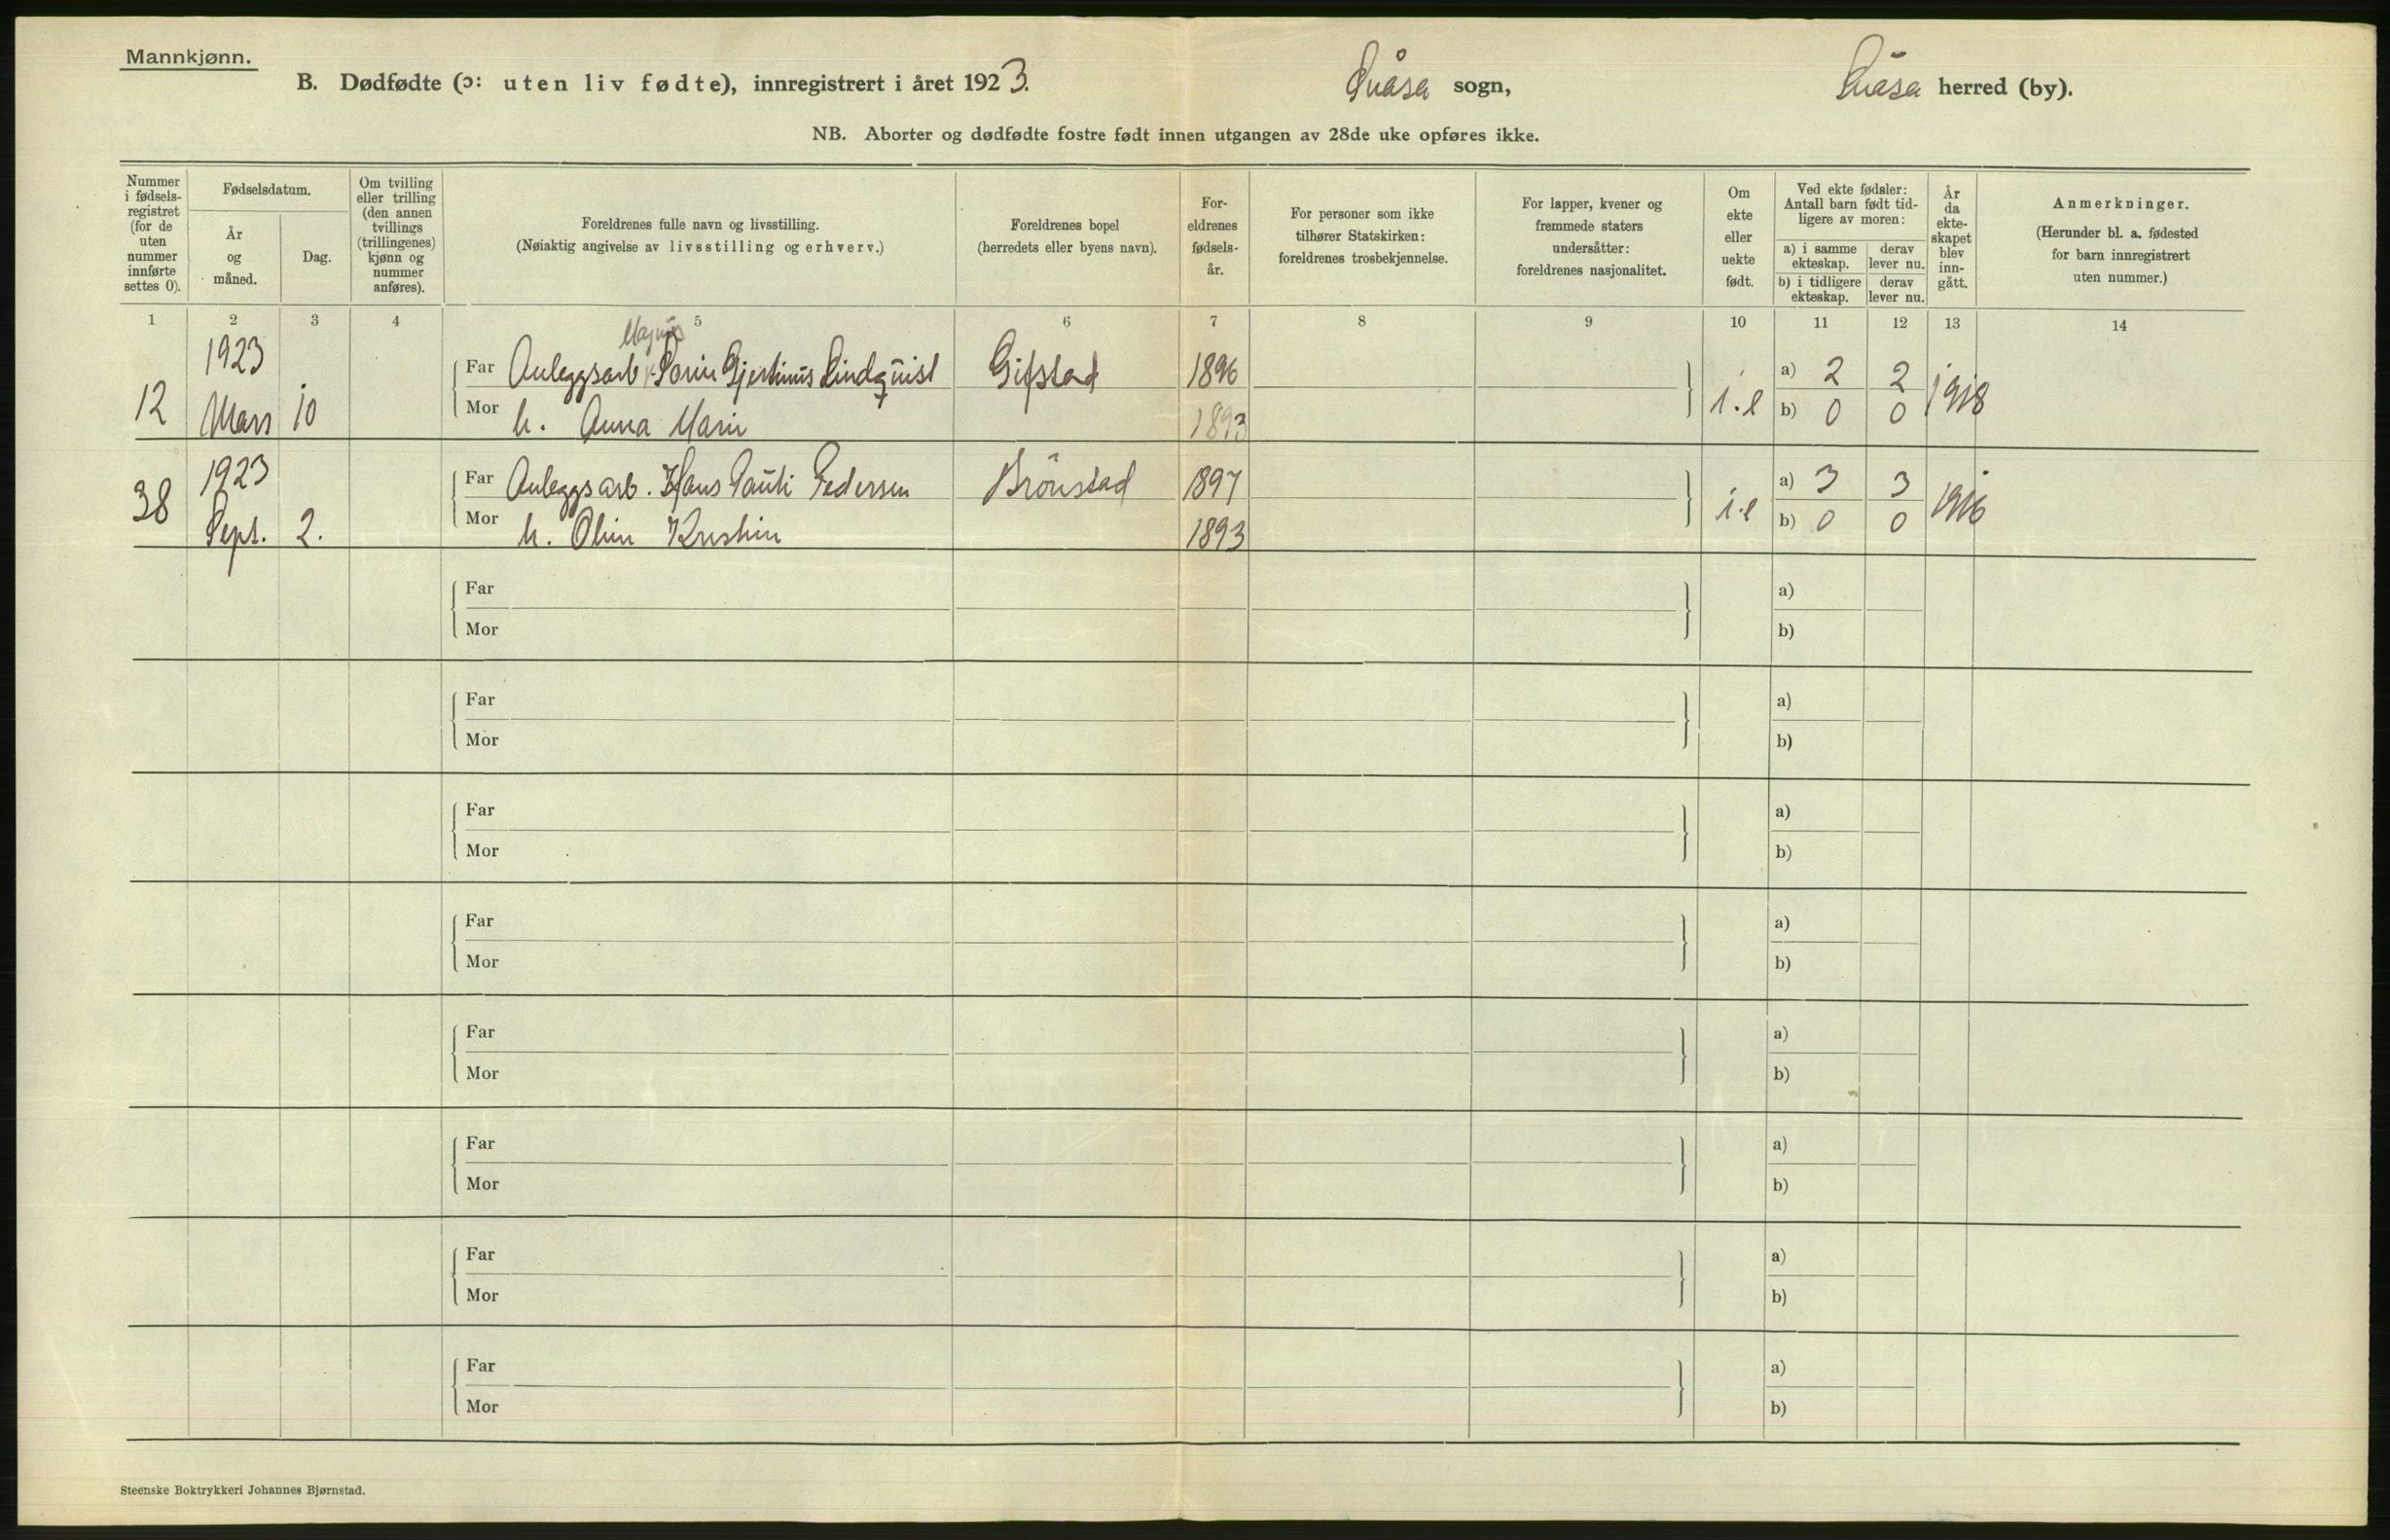 Mannkjønn.
B. Dødfødte (ɔ: uten liv fødte), innregistrert i året 1923.
Snåsa sogn,
Snåsa herred (by).
NB. Aborter og dødfødte fostre født innen utgangen av 28de uke opføres ikke.
Nummer
i fødsels-
registret
(for de
uten
nummer
innførte
settes 0).
Fødselsdatum.
År
og
måned.
Dag.
Om tvilling
eller trilling
(den annen
tvillings
(trillingenes)
kjønn og
nummer
anføres).
Foreldrenes fulle navn og livsstilling.
(Nøiaktig angivelse av livsstilling og erhverv.)
Foreldrenes bopel
(herredets eller byens navn).
For-
eldrenes
fødsels-
år.
For personer som ikke
tilhører Statskirken:
foreldrenes trosbekjennelse.
For lapper, kvener og
fremmede staters
undersåtter:
foreldrenes nasjonalitet.
Om
ekte
eller
uekte
født.
Ved ekte fødsler:
Antall barn født tid-
ligere av moren:
a) i samme
ekteskap.
derav
lever nu.
b) i tidligere
ekteskap.
derav
lever nu.
År
da
ekte-
skapet
blev
inn-
gått.
Anmerkninger.
(Herunder bl. a. fødested
for barn innregistrert
uten nummer.)
1 2 3 4 5 6 7 8 9 10 11 12 13 14
Magnus
1923 Far Anleggsarb. Gjertinus Lindquist Gifstad 1896 a) 2 2
12 Mars 10 Mor h. Anna Marie 1893 i.e b) 0 0 1918
1923 Far Anleggsarb. Hans Pauli Pedersen Brönstad 1897 a) 3 3
38 Sept. 2. Mor h. Oline Kristine 1893 i.e b) 0 0 1916
Far a)
Mor b)
Far a)
Mor b)
Far a)
Mor b)
Far a)
Mor b)
Far a)
Mor b)
Far a)
Mor b)
Far a)
Mor b)
Far a)
Mor b)
Steenske Boktrykkeri Johannes Bjørnstad.